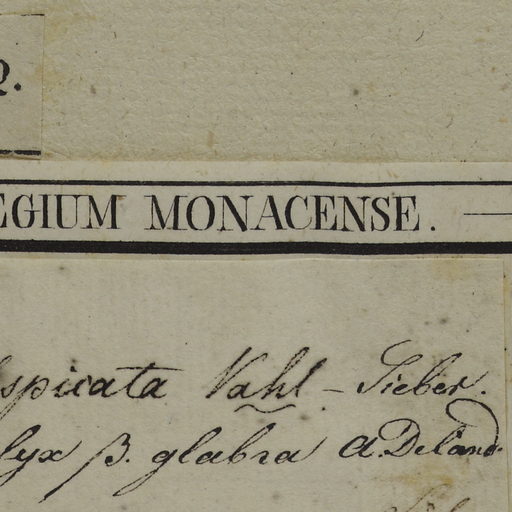 EGIUM MONACENSE.
spicata Vahl. – Sieber.
lyx β. glabra A.DeCand.